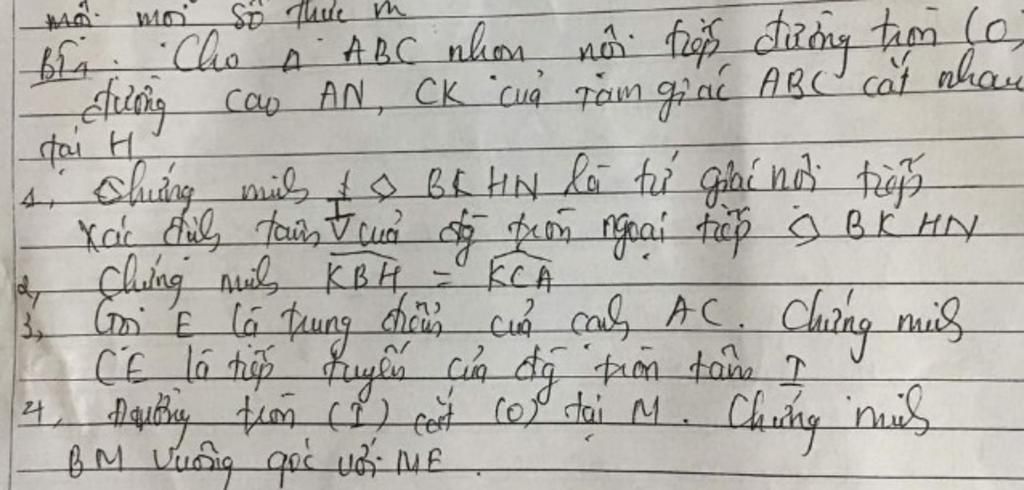 mọi số thực m
Bài 4: Cho Δ ABC nhọn nội tiếp đường tròn (O,
đường cao AN, CK của tam giác ABC cắt nhau
tại H
1, Chứng minh tứ ◇ BKHN là tứ giác nội tiếp
Xác định tâm I của đg tròn ngoại tiếp ◇ BKHN
2, Chứng minh KBH = KCA
3, Gọi E là trung điểm của cạnh AC. Chứng minh
CE là tiếp tuyến của đg tròn tâm I
4, Đường tròn (I) cắt (O) tại M. Chứng minh
BM vuông góc với ME.